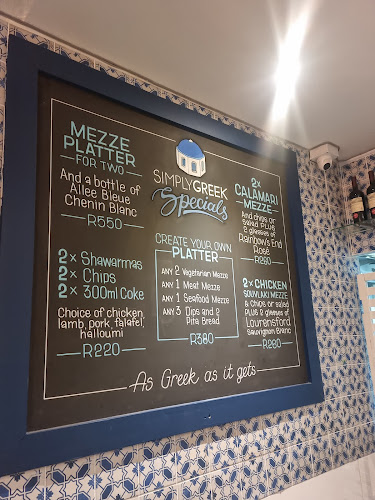 MEZZE
PLATTER
FOR TWO
And a bottle of
Allee Bleue
Chenin Blanc
R550
2x Shawarmas
2x Chips
2x 300ml Coke
Choice of chicken,
lamb, pork, falafel,
halloumi
R220
SIMPLYGREEK
Specials
CREATE YOUR OWN
PLATTER
ANY 2 Vegetarian Mezze
ANY 1 Meat Mezze
ANY 1 Seafood Mezze
ANY 3 Dips and 2
Pita Bread
R380
2x
CALAMARI
MEZZE
And chips or
salad PLUS
2 glasses of
Rainbow's End
Rosé
R290
2x CHICKEN
SOUVLAKI MEZZE
& Chips or salad
PLUS 2 glasses of
Lourensford
Sauvignon Blanc
R280
As Greek as it gets